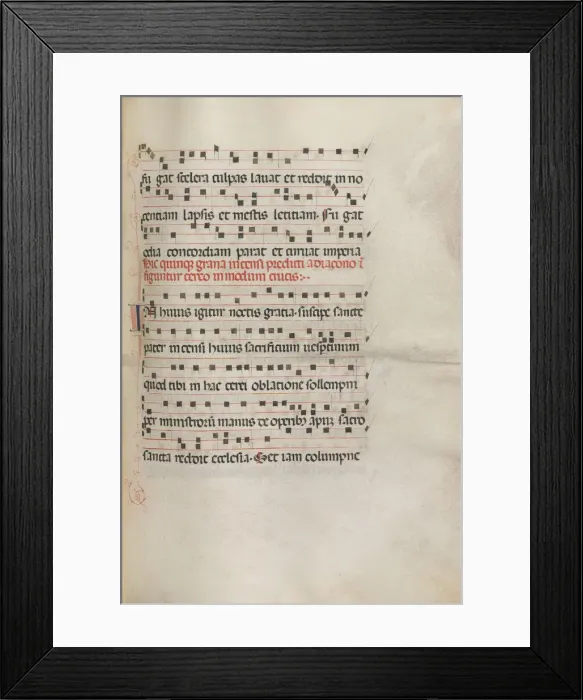 fu gat scelera culpas lauat et reddit in no
centiam lapsis et mestis letitiam. Fu gat
odia concordiam parat et curuat imperia
hic quinqꝫ grana incensi predicti a diacono ī
figuntur cereo in modum crucis:·
IN huius igitur noctis gratia. suscipe sancte
pater incensi huius sacrificium uespertinum
quod tibi in hac cerei oblatione sollempni
per ministrorū manus de operibꝫ apum sacro
sancta reddit ecclesia. Set iam columpne